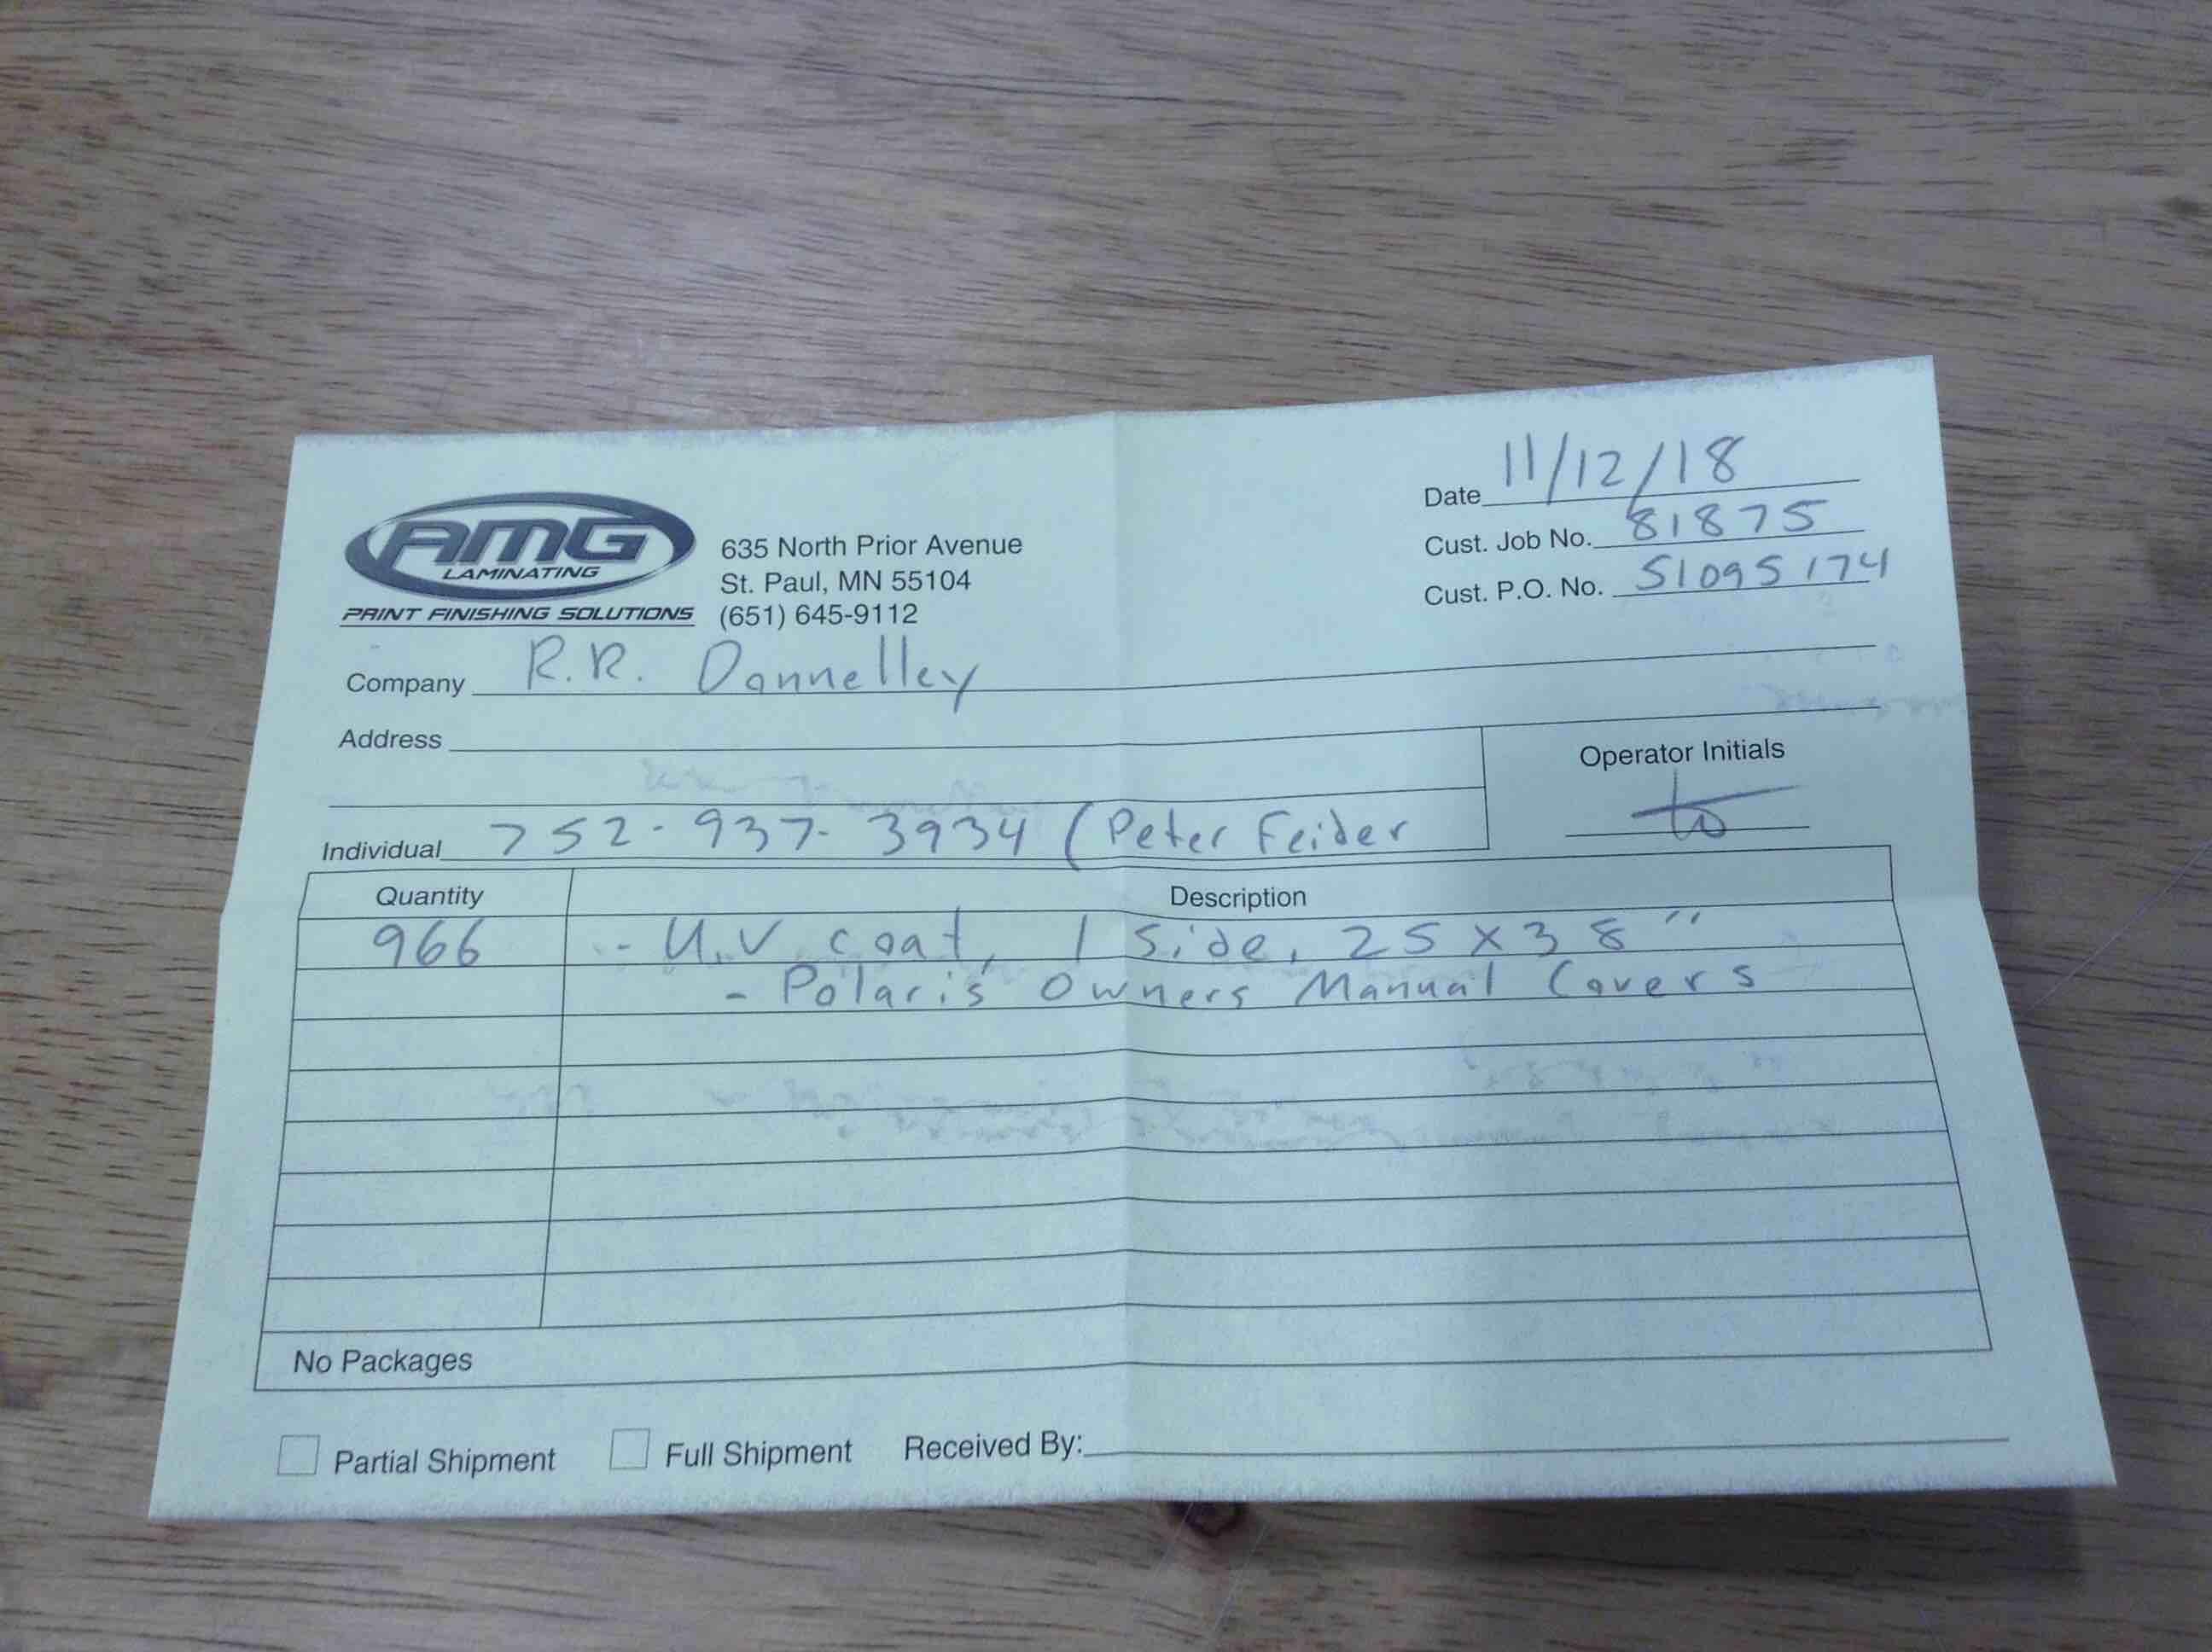 AMG
LAMINATING
PRINT FINISHING SOLUTIONS
635 North Prior Avenue
St. Paul, MN 55104
(651) 645-9112
Date 11/12/18
Cust. Job No. 81875
Cust. P.O. No. 51095174
Company R.R. Donnelley
Address
Operator Initials
Individual 752-937-3934 (Peter Feider
Quantity Description
966 - U.V. coat, 1 side, 25 x 38"
- Polaris Owners Manual Covers
No Packages
Partial Shipment Full Shipment Received By: